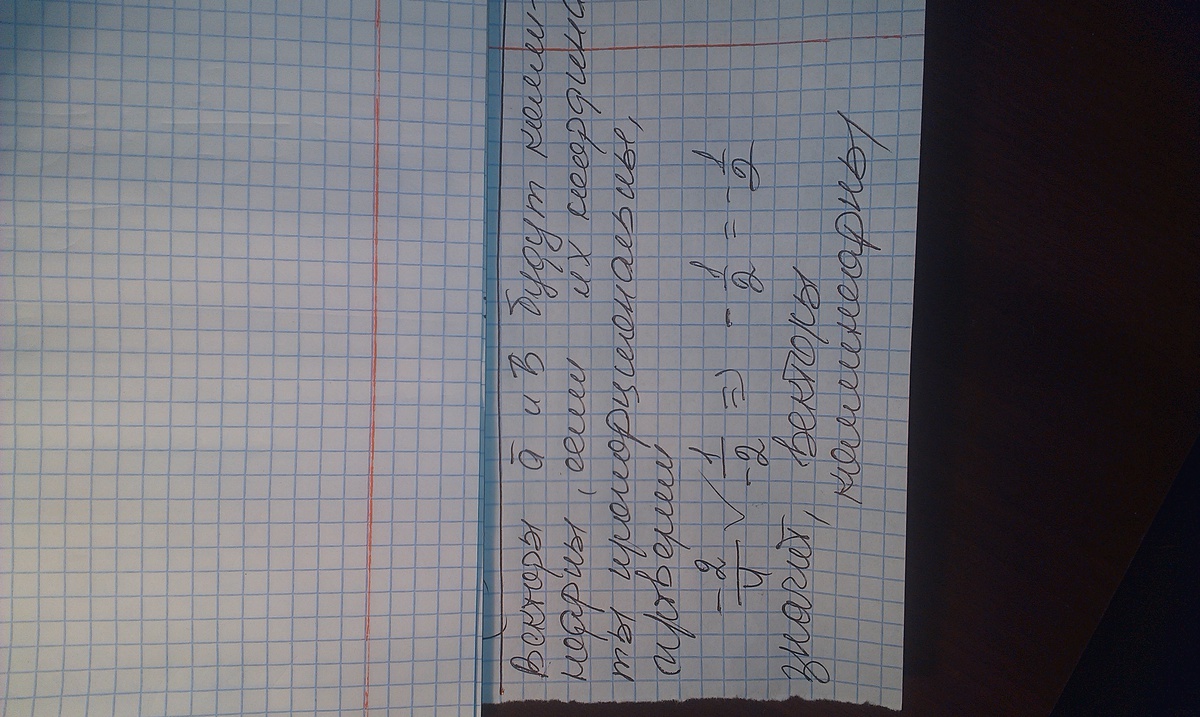 Векторы ā и в̄ будут колли-
неарны, если их координа
ты пропорциональны,
проверим
-2/4 ∨ 1/-2 ⇒ -1/2 = -1/2
значит, векторы
коллинеарны